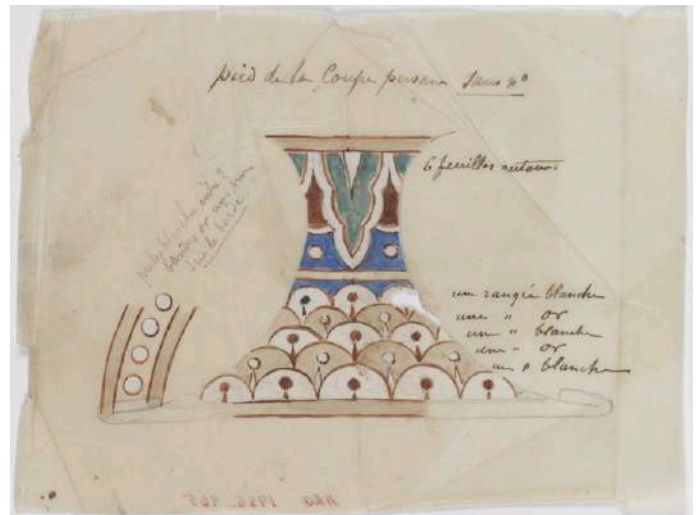 pied de la Coupe persane Sans nº
6 feuilles autour
perles blanches entre 2
bandes or
sur le bord
une rangée blanche
une " or
une " blanche
une " or
une " blanche
ARO 1986 965